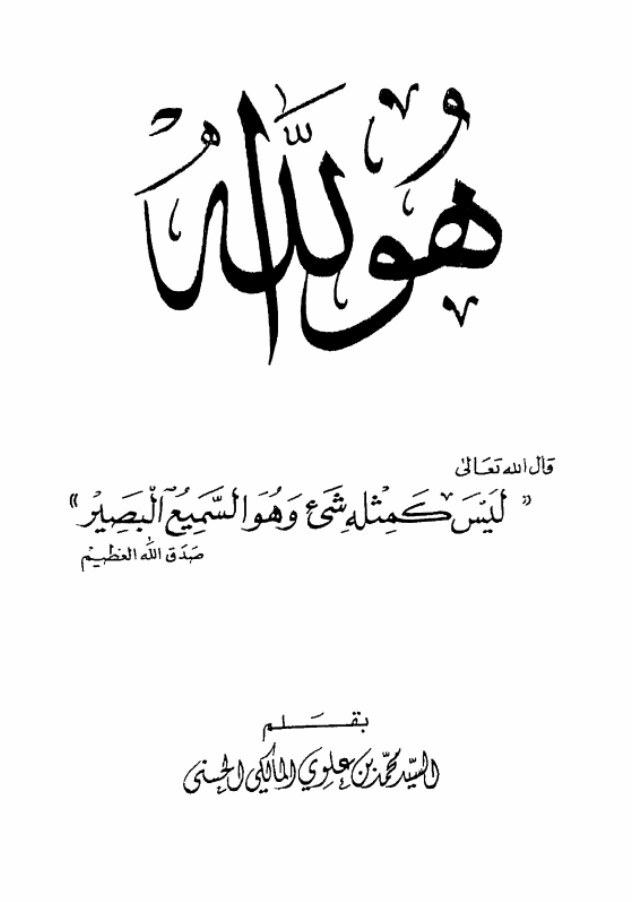 هو الله
قال الله تعالى
« لَيْسَ كَمِثْلِهِ شَىْءٌ وَهُوَ السَّمِيعُ الْبَصِيرُ »
صدق الله العظيم
بقلم
السيد محمد بن علوي المالكي الحسني